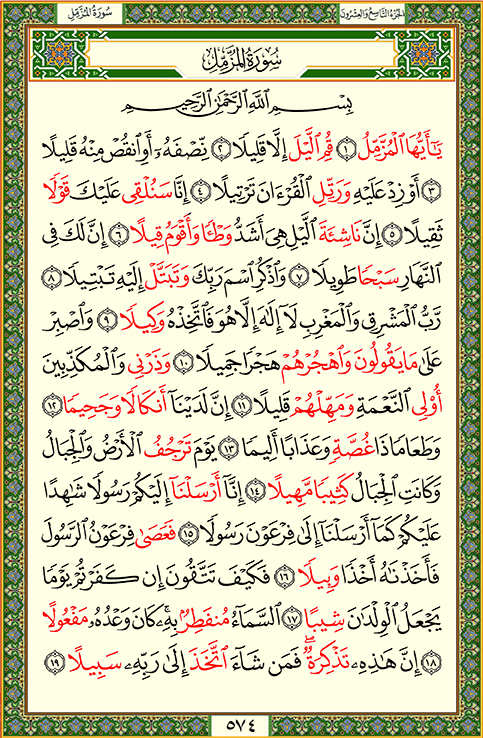 الجزء التاسع والعشرون
سورة المزمل
سُورَةُ المُزَّمِّلِ
بِسْمِ ٱللَّهِ ٱلرَّحْمَٰنِ ٱلرَّحِيمِ
يَـٰٓأَيُّهَا ٱلْمُزَّمِّلُ ١ قُمِ ٱلَّيْلَ إِلَّا قَلِيلًا ٢ نِّصْفَهُۥٓ أَوِ ٱنقُصْ مِنْهُ قَلِيلًا
٣ أَوْ زِدْ عَلَيْهِ وَرَتِّلِ ٱلْقُرْءَانَ تَرْتِيلًا ٤ إِنَّا سَنُلْقِى عَلَيْكَ قَوْلًا
ثَقِيلًا ٥ إِنَّ نَاشِئَةَ ٱلَّيْلِ هِىَ أَشَدُّ وَطْـًٔا وَأَقْوَمُ قِيلًا ٦ إِنَّ لَكَ فِى
ٱلنَّهَارِ سَبْحًا طَوِيلًا ٧ وَٱذْكُرِ ٱسْمَ رَبِّكَ وَتَبَتَّلْ إِلَيْهِ تَبْتِيلًا ٨
رَّبُّ ٱلْمَشْرِقِ وَٱلْمَغْرِبِ لَآ إِلَٰهَ إِلَّا هُوَ فَٱتَّخِذْهُ وَكِيلًا ٩ وَٱصْبِرْ
عَلَىٰ مَا يَقُولُونَ وَٱهْجُرْهُمْ هَجْرًا جَمِيلًا ١٠ وَذَرْنِى وَٱلْمُكَذِّبِينَ
أُو۟لِى ٱلنَّعْمَةِ وَمَهِّلْهُمْ قَلِيلًا ١١ إِنَّ لَدَيْنَآ أَنكَالًا وَجَحِيمًا ١٢
وَطَعَامًا ذَا غُصَّةٍ وَعَذَابًا أَلِيمًا ١٣ يَوْمَ تَرْجُفُ ٱلْأَرْضُ وَٱلْجِبَالُ
وَكَانَتِ ٱلْجِبَالُ كَثِيبًا مَّهِيلًا ١٤ إِنَّآ أَرْسَلْنَآ إِلَيْكُمْ رَسُولًا شَٰهِدًا
عَلَيْكُمْ كَمَآ أَرْسَلْنَآ إِلَىٰ فِرْعَوْنَ رَسُولًا ١٥ فَعَصَىٰ فِرْعَوْنُ ٱلرَّسُولَ
فَأَخَذْنَٰهُ أَخْذًا وَبِيلًا ١٦ فَكَيْفَ تَتَّقُونَ إِن كَفَرْتُمْ يَوْمًا
يَجْعَلُ ٱلْوِلْدَٰنَ شِيبًا ١٧ ٱلسَّمَآءُ مُنفَطِرٌۢ بِهِۦ ۚ كَانَ وَعْدُهُۥ مَفْعُولًا
١٨ إِنَّ هَٰذِهِۦ تَذْكِرَةٌ ۖ فَمَن شَآءَ ٱتَّخَذَ إِلَىٰ رَبِّهِۦ سَبِيلًا ١٩
٥٧٤